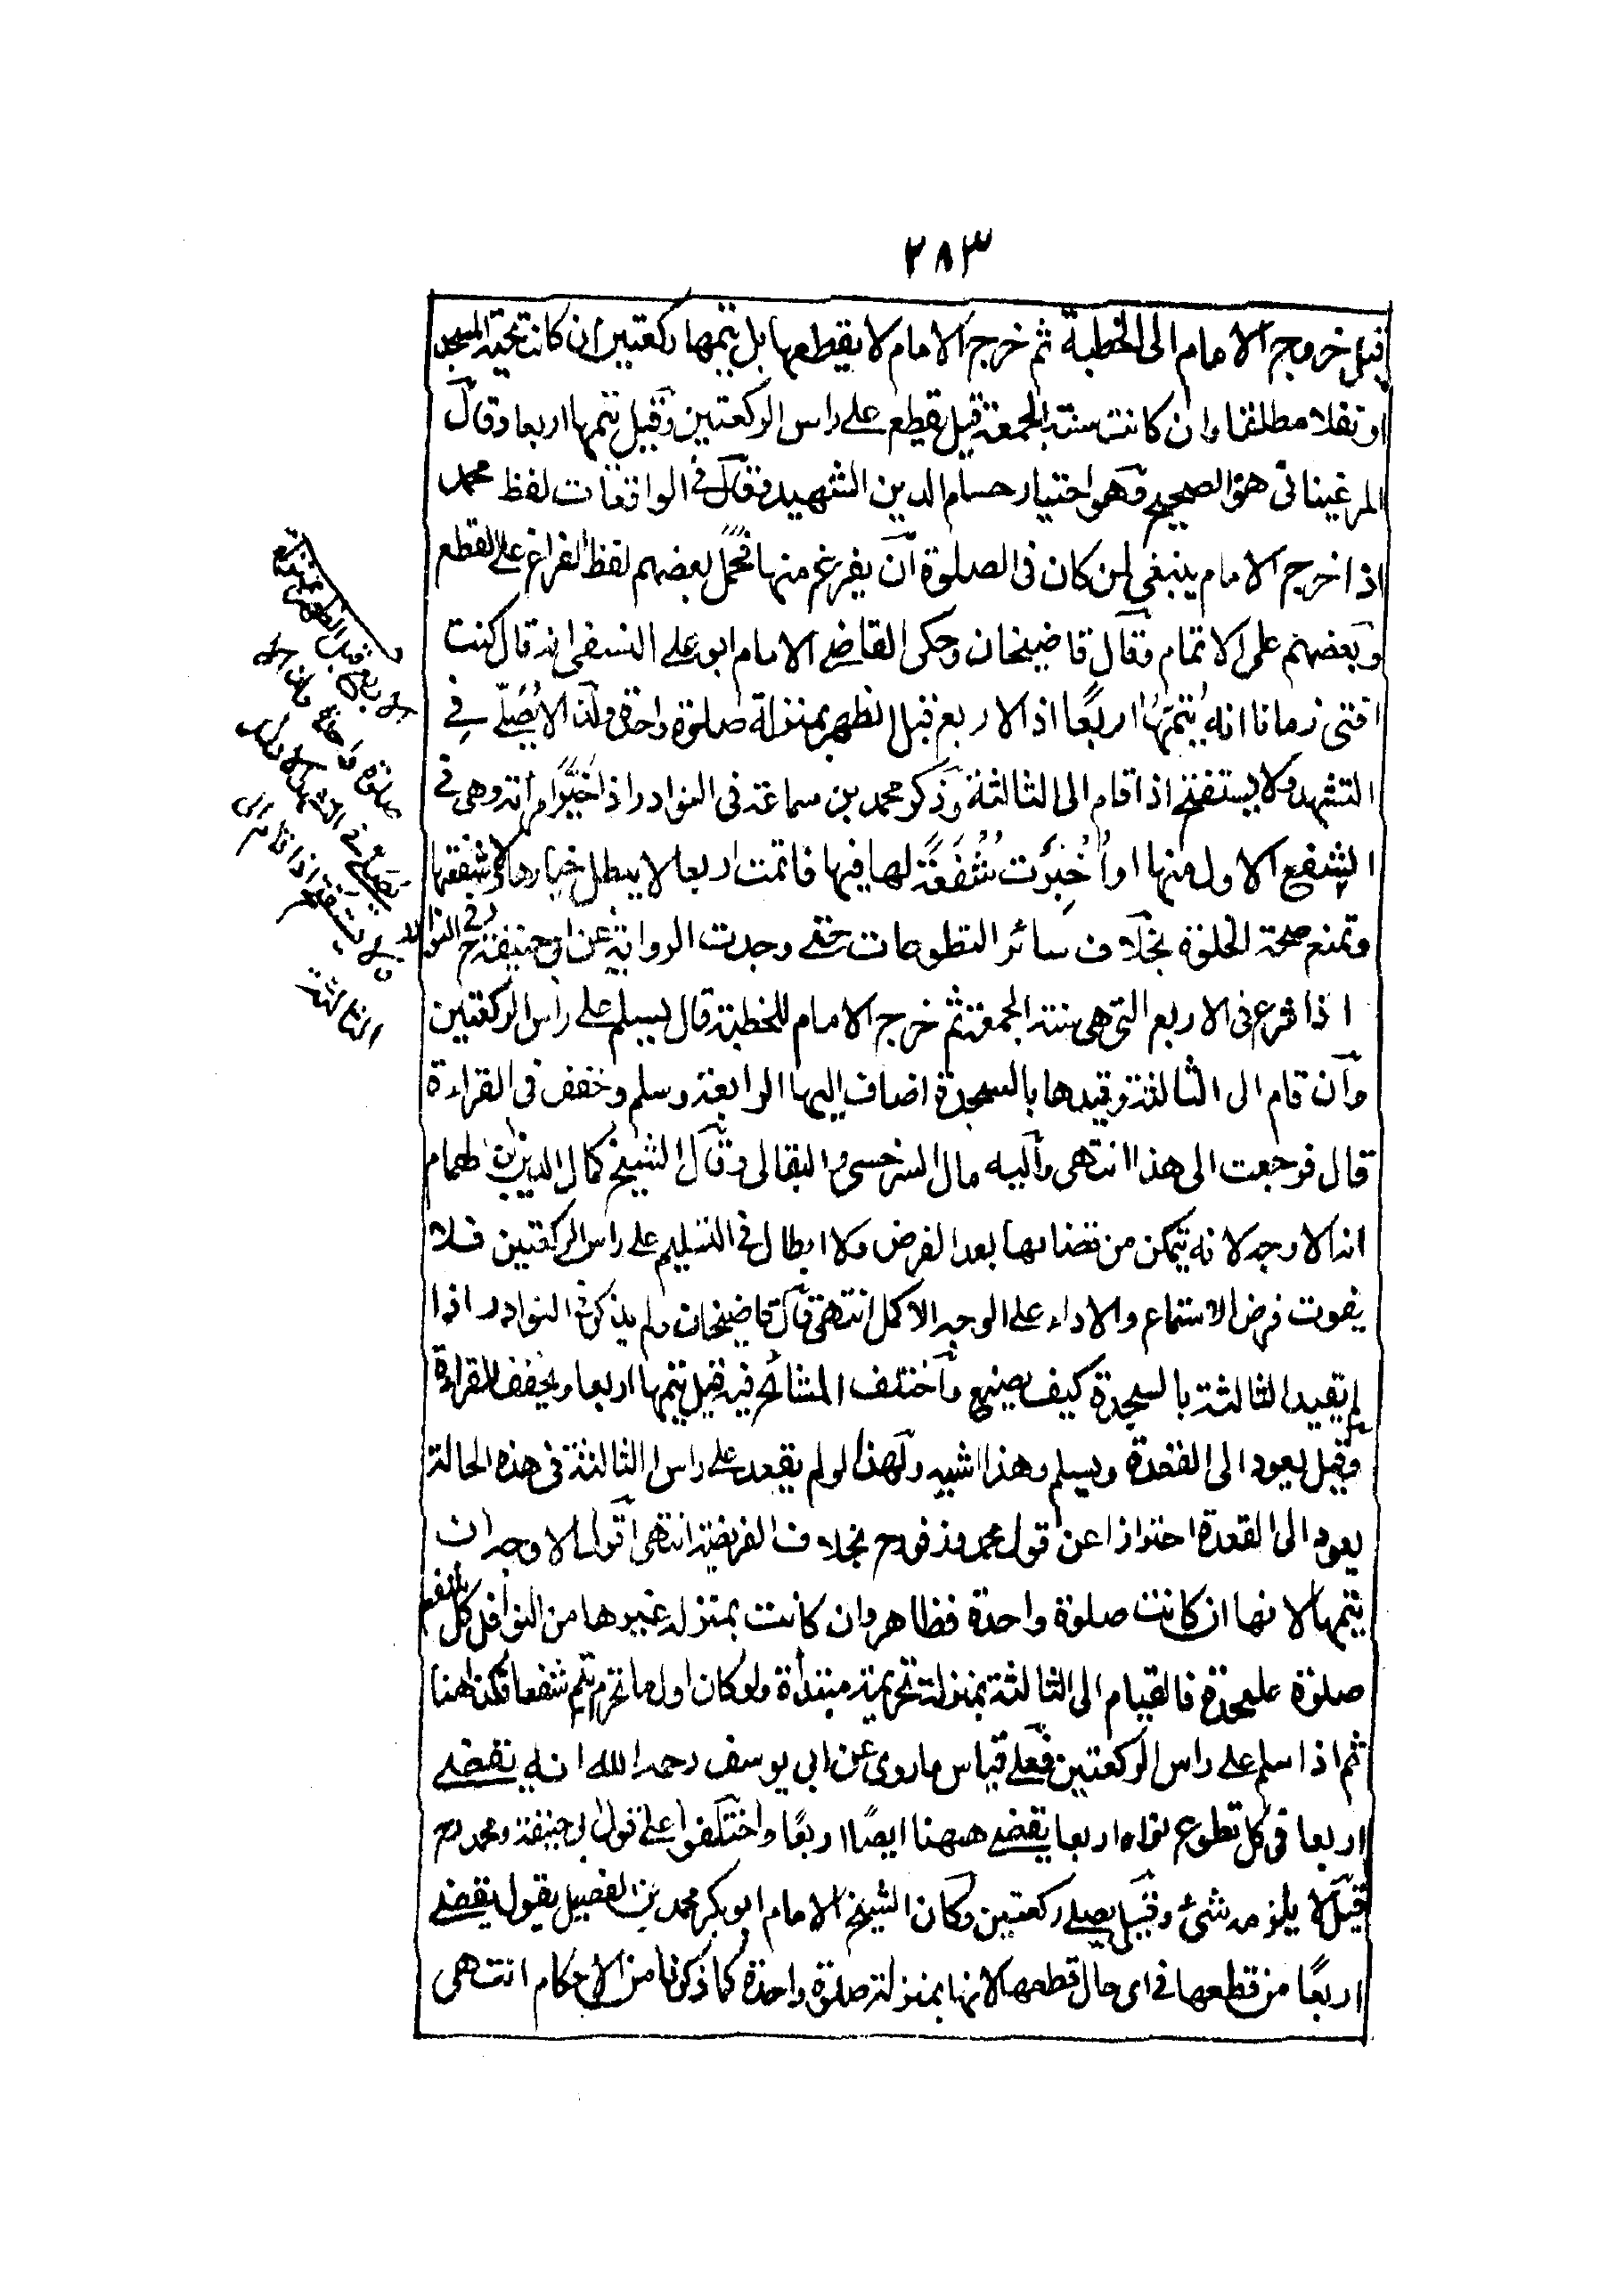 ٢٨٣
قبل خروج الامام الى الخطبة ثم خرج الامام لا يقطعها بل يتمها ركعتين ان كانت تحية المسجد
او نفلا مطلقا وان كانت سنة الجمعة قيل يقطع على راس الركعتين وقيل يتمها اربعا وقال
المرغينانى هو الصحيح وهو اختيار حسام الدين الشهيد وقال فى الواقعات لفظ محمد
اذا خرج الامام ينبغى لمن كان فى الصلوة ان يفرغ منها فحمل بعضهم لفظ الفراغ على القطع
وبعضهم على الاتمام وقال قاضيخان وحكى القاضى الامام ابو على النسفى انه قال كنت
افتى زمانا انه يتمها اربعًا اذ الاربع قبل الظهر بمنزلة صلوة واحدة ولذا لا يُصَلّى فى
التشهد ولا يستفتح اذا قام الى الثالثة وذكر محمد بن سماعة فى النوادر اذا خَيَّرَ امرأته وهى فى
الشفع الاول منها او اُخْبِرَت شُفْعَةً لها فيها فاتمت اربعا لا يبطل خيارها ولا شفعتها
وتمنع صحة الخلوة بخلاف سائر التطوعات حتى وجدت الرواية عن ابى حنيفة رح فى النوادر
اذا شرع فى الاربع التى هى سنة الجمعة ثم خرج الامام للخطبة قال يسلم على راس الركعتين
وان قام الى الثالثة وقيدها بالسجدة اضاف اليها الرابعة وسلم وخفف فى القراءة
قال فرجعت الى هذا انتهى واليه مال السرخسى والبقالى وقال الشيخ كمال الدين بن الهمام
انه الاوجه لانه يتمكن من قضائها بعد الفرض ولا ابطال فى التسليم على راس الركعتين فلا
يفوت فرض الاستماع والاداء على الوجه الاكمل انتهى قال قاضيخان ولم يذكر فى النوادر اذا
لم يقيد الثالثة بالسجدة كيف يصنع واختلف المشائخ فيه قيل يتمها اربعا ويخفف القراءة
وقيل يعود الى القعدة ويسلم وهذا اشبه ولهذا لو لم يقعد على راس الثالثة فى هذه الحالة
يعود الى القعدة احترازا عن قول محمد وزفر رح بخلاف الفريضة انتهى اقول الاوجه ان
يتمها لانها ان كانت صلوة واحدة فظاهر وان كانت بمنزلة غيرها من النوافل كل شفع
صلوة عليحدة فالقيام الى الثالثة بمنزلة تحريمة مبتدأة ولو كان اول ما تحرم يتم شفعا فكذا ههنا
ثم اذا سلم على راس الركعتين فعلى قياس ما روى عن ابى يوسف رحمه الله انه يقضى
اربعا فى كل تطوع نواه اربعا يقضى ههنا ايضًا اربعًا واختلفوا على قول ابى حنيفة ومحمد رح
قيل لا يلزمه شئ وقيل يصلى ركعتين وكان الشيخ الامام ابو بكر محمد بن الفضيل يقول يقضى
اربعًا من قطعها فى اى حال قطعها لانها بمنزلة صلوة واحدة كما ذكرنا من الاحكام انتهى
صلوة واحدة
اذا قام الى
الثالثة